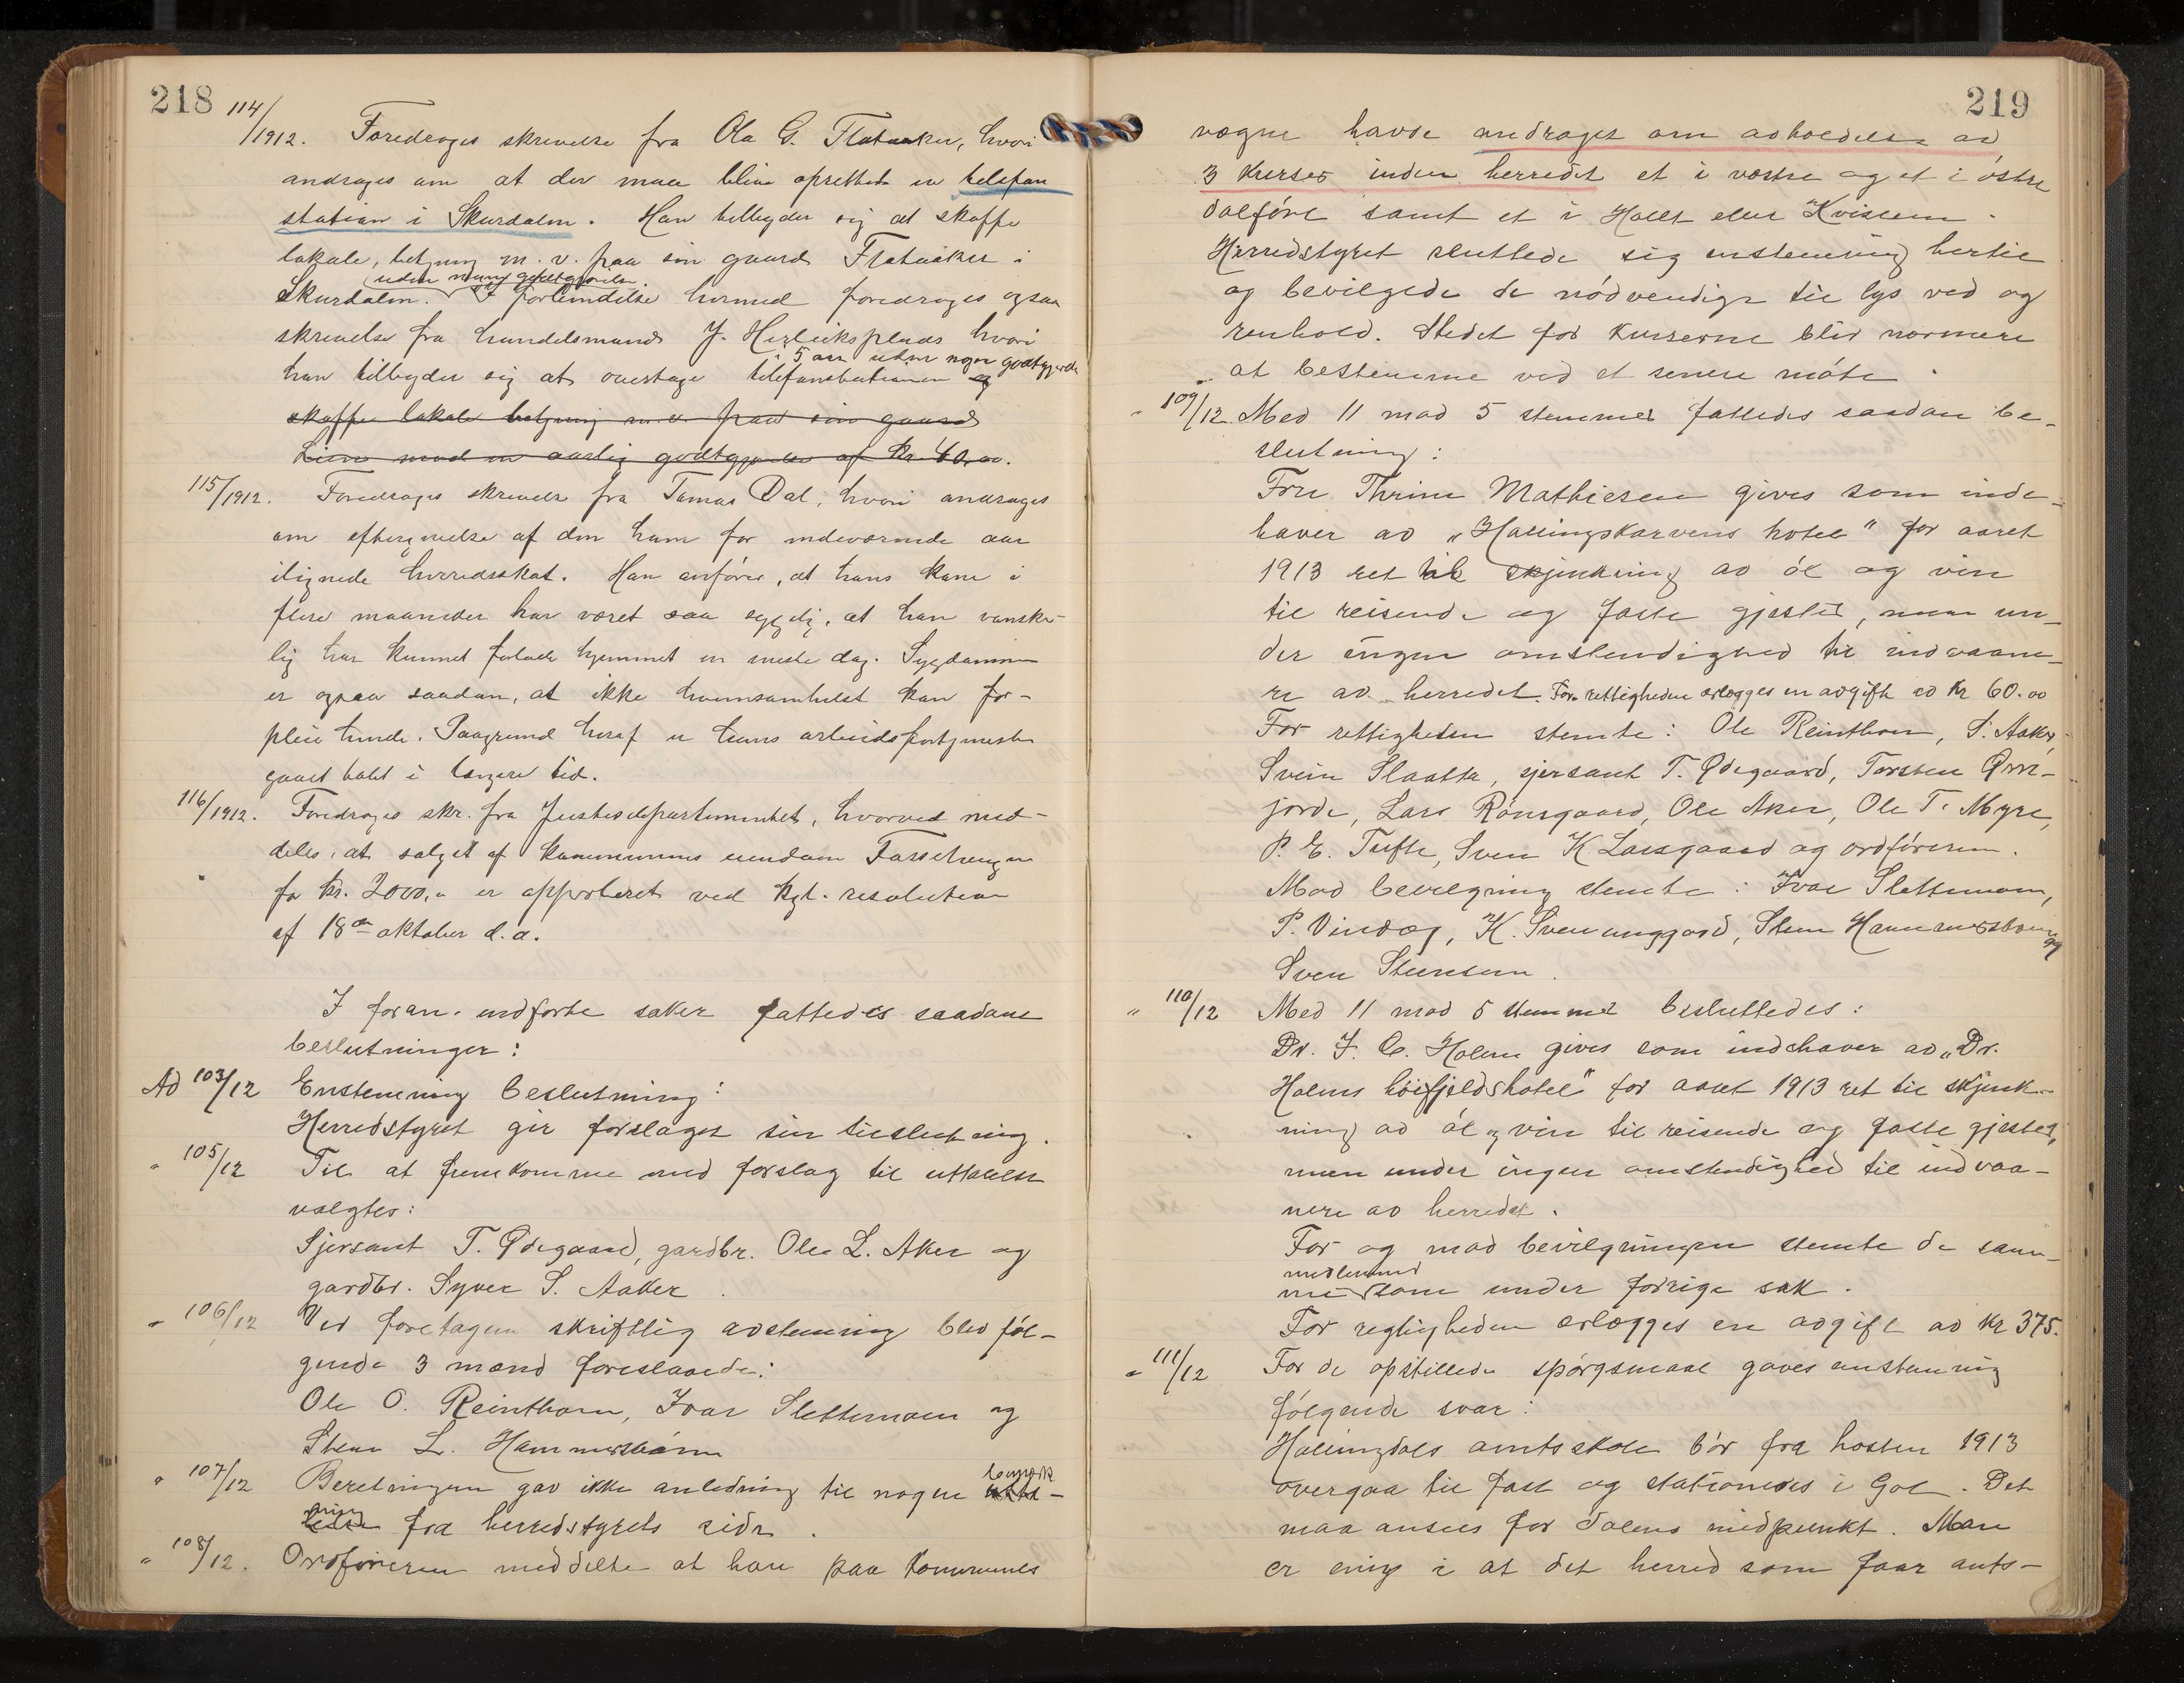 218
114/1912. Foredroges skrivelse fra Ola G. Flataaker, hvori
andrages om at der maa blive oprettet en telefon
station i Skurdalen. Han tilbyder sig at skaffe
lokale, betjening m. v. paa sin gaard Flataaker i
uden nogen godtgjørelse.
Skurdalen. I forbindelse hermed foredroges ogsaa
skrivelse fra handelsmand J. hvori
i 5 aar uden nogen godtgjørelse
han tilbyder sig at overtage telefonstationen og
skaffe lokale betjening m. v. paa sin gaard
Lien mod en aarlig godtgjørelse af Kr 40,00.
115/1912. Foredroges skrivelse fra Tomas Dal, hvori andrages
om eftergivelse af den ham for indeværende aar
ilignede herredsskat. Han anfører, at hans kone i
flere maaneder har været saa sygelig, at han vanske-
lig har kunnet forlade hjemmet en eneste dag. Sygdommen
er ogsaa saadan, at ikke hvemsomhelst kan for-
pleie hende. Paagrund heraf er hans arbeidsfortjeneste
gaaet tabt i længere tid.
116/1912. Foredroges skr. fra Justisdepartementet, hvorved med-
deles, at salget af kommunens eiendom
for Kr. 2000,- er approberet ved kgl. resolution
af 18de oktober d. a.
I foran indførte saker fattedes saadane
beslutninger:
Ad 103/12 Enstemmig beslutning:
Herredstyret gir forslaget sin tilslutning.
" 105/12 Til at fremkomme med forslag til uttalelse
valgtes:
Sjersant T. Ødegaard, gardbr. Ole L. Aker og
gardbr. Syver S. Aaker.
" 106/12 Ved foretagen skriftlig avstemning blev føl-
gende 3 mænd foreslaaede:
Ole O. Reinthon, Ivar Slettemoen og
Sten L. Hammersbøen
" 107/12 Beretningen gav ikke anledning til nogen bemærk-
ning fra herredstyrets side.
" 108/12. Ordføreren meddelte at han paa kommunes
219
vegne havde andraget om avholdelse av
3 kurser inden herredet et i vestre og et i østre
dalføre samt et i Hallet eller Kvislen.
Herredstyret sluttede sig enstemmig hertil
og bevilgede de nødvendige til lys ved og
renhold. Stedet for kurserne blir nærmere
at bestemme ved et senere møte.
" 109/12. Med 11 mod 5 stemmer fattedes saadan be-
slutning:
Fru Thrine Mathiesen gives som inde-
haver av „Hallingskarvens hotel" for aaret
1913 ret til skjenkning av øl og vin
til reisende og faste gjester, men un-
der ingen omstendighed til indvaane-
re av herredet. For rettigheden erlægges en avgift av Kr 60.00
For rettigheden stemte: Ole Reinthon, S. Aaker,
Svein Slaatta, sjersant T. Ødegaard, Torsten Ørte-
jorde, Lars Rønsgaard, Ole Aker, Ole T. Myre,
P. E. Tufte, Sven K Larsgaard og ordføreren.
Mod bevilgning stemte: Ivar Slettemoen,
P. Vindeg, K. Sveinunggard, Sten Hammersbøen og
Sven Stensen.
" 110/12 Med 11 mod 5 stemmer besluttedes:
Dr. J. C. Holm gives som indehaver av „Dr.
Holms høifjeldshotel" for aaret 1913 ret til skjenk-
ning av øl og vin til reisende og faste gjester,
men under ingen omstendighed til indvaa-
nere av herredet.
For og mod bevilgningen stemte de sam-
medlemmer
me som under forrige sak.
For regtigheden erlægges en avgift av Kr 375.
" 111/12 For de opstillede spørgsmaal gaves enstemmig
følgende svar:
Hallingdals amtsskole bør fra høsten 1913
overgaa til fast og stationeres i Gol. Det
maa ansees for dalens midpunkt. Man
er enig i at det herred som faar amts-